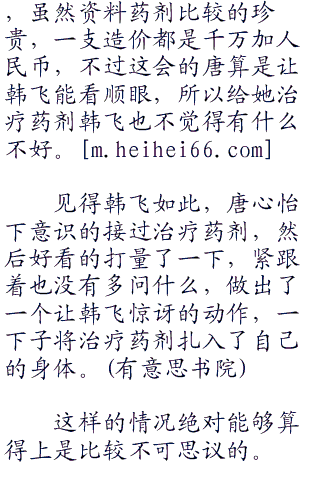 ，虽然资料药剂比较的珍
贵，一支造价都是千万加人
民币，不过这会的唐算是让
韩飞能看顺眼，所以给她治
疗药剂韩飞也不觉得有什么
不好。[m.heihei66.com]
见得韩飞如此，唐心怡
下意识的接过治疗药剂，然
后好看的打量了一下，紧跟
着也没有多问什么，做出了
一个让韩飞惊讶的动作，一
下子将治疗药剂扎入了自己
的身体。(有意思书院)
这样的情况绝对能够算
得上是比较不可思议的。